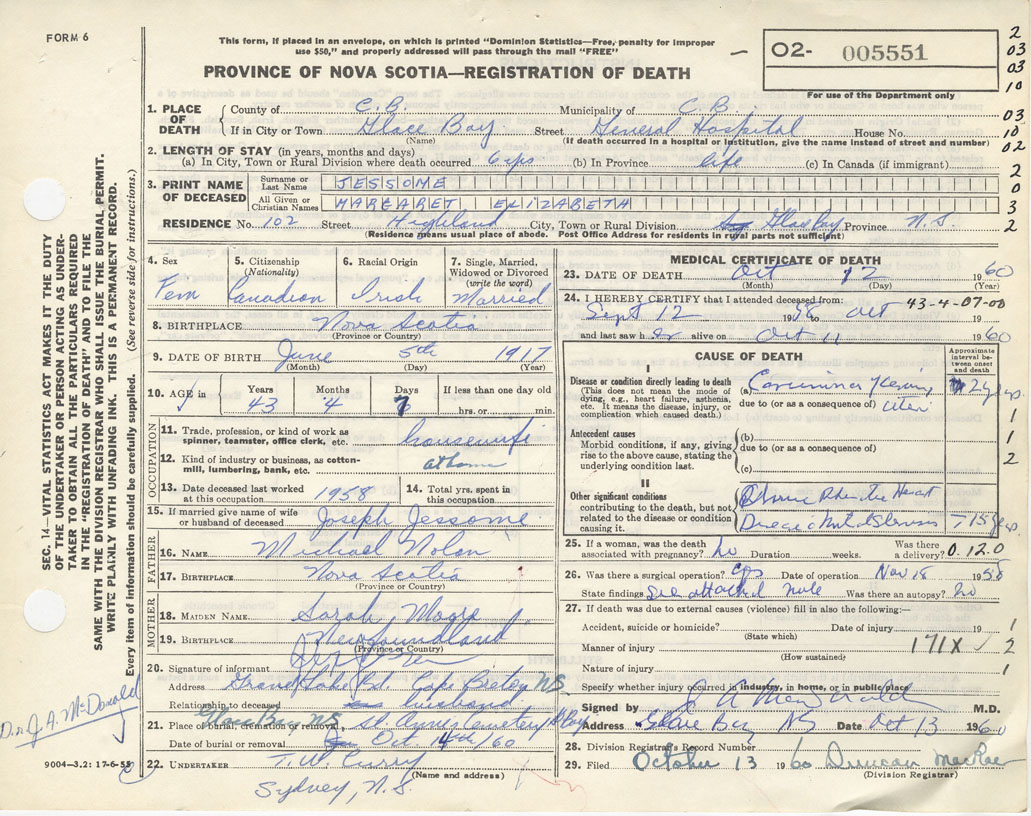 FORM 6
This form, if placed in an envelope, on which is printed "Dominion Statistics—Free, penalty for improper
use $50," and properly addressed will pass through the mail "FREE"
O2- 005551
For use of the Department only
PROVINCE OF NOVA SCOTIA—REGISTRATION OF DEATH
2
03
03
10
03
10
02
2
0
3
2
1. PLACE OF DEATH County of C.B. Municipality of C.B.
If in City or Town Glace Bay Street General Hospital House No.
(Name) (If death occurred in a hospital or institution, give the name instead of street and number)
2. LENGTH OF STAY (in years, months and days)
(a) In City, Town or Rural Division where death occurred 6 yrs (b) In Province life (c) In Canada (if immigrant)
3. PRINT NAME OF DECEASED Surname or Last Name JESSOME
All Given or Christian Names MARGARET ELIZABETH
RESIDENCE No. 102 Street Highland City, Town or Rural Division Glace Bay Province N.S.
(Residence means usual place of abode. Post Office Address for residents in rural parts not sufficient)
4. Sex Fem
5. Citizenship (Nationality) Canadian
6. Racial Origin Irish
7. Single, Married, Widowed or Divorced (write the word) Married
8. BIRTHPLACE Nova Scotia
(Province or Country)
9. DATE OF BIRTH June 5th 1917
(Month) (Day) (Year)
10. AGE in Years 43 Months 4 Days 7 If less than one day old hrs. or min.
OCCUPATION
11. Trade, profession, or kind of work as spinner, teamster, office clerk, etc. housewife
12. Kind of industry or business, as cotton-mill, lumbering, bank, etc. at home
13. Date deceased last worked at this occupation 1958
14. Total yrs. spent in this occupation
15. If married give name of wife or husband of deceased Joseph Jessome
FATHER
16. NAME Michael Nolan
17. BIRTHPLACE Nova Scotia
(Province or Country)
MOTHER
18. MAIDEN NAME Sarah Moore
19. BIRTHPLACE Newfoundland
(Province or Country)
20. Signature of informant
Address Grand Lake Rd. Cape Breton NS
Relationship to deceased husband
21. Place of burial, cremation or removal St. Annes Cemetery G Bay
Glace Bay NS
Date of burial or removal Oct 14th/60
22. UNDERTAKER T. W. Curry
(Name and address)
Sydney, N.S.
MEDICAL CERTIFICATE OF DEATH
23. DATE OF DEATH Oct 12 1960
(Month) (Day) (Year)
24. I HEREBY CERTIFY that I attended deceased from: 43-4-07-00
Sept 12 1958 to Oct 19
and last saw h er alive on Oct 11 1960
CAUSE OF DEATH
Approximate interval between onset and death
I
Disease or condition directly leading to death
(This does not mean the mode of dying, e.g., heart failure, asthenia, etc. It means the disease, injury, or complication which caused death.)
(a) Carcinoma Cervix 2 yrs.
due to (or as a consequence of) Uteri 1
Antecedent causes
Morbid conditions, if any, giving rise to the above cause, stating the underlying condition last.
(b) 1
due to (or as a consequence of) 2
(c)
II
Other significant conditions contributing to the death, but not related to the disease or condition causing it.
Chronic Rheumatic Heart
Disease Mitral Stenosis 15 yrs
25. If a woman, was the death associated with pregnancy? no Duration weeks. Was there a delivery? 0.12.0
26. Was there a surgical operation? yes Date of operation Nov 18 1958
State findings See attached note Was there an autopsy? no
27. If death was due to external causes (violence) fill in also the following:—
Accident, suicide or homicide? Date of injury 19 1
(State which)
Manner of injury 171X 2
(How sustained)
Nature of injury 1
Specify whether injury occurred in industry, in home, or in public place
Signed by M.D.
Address Glace Bay NS Date Oct 13 1960
28. Division Registrar's Record Number
29. Filed October 13 1960 Duncan MacRae
(Division Registrar)
SEC. 14—VITAL STATISTICS ACT MAKES IT THE DUTY
OF THE UNDERTAKER OR PERSON ACTING AS UNDER-
TAKER TO OBTAIN ALL THE PARTICULARS REQUIRED
IN THE "REGISTRATION OF DEATH" AND TO FILE THE
SAME WITH THE DIVISION REGISTRAR WHO SHALL ISSUE THE BURIAL PERMIT.
WRITE PLAINLY WITH UNFADING INK. THIS IS A PERMANENT RECORD.
Every item of information should be carefully supplied. (See reverse side for instructions.)
Dr. J. A. McDonald
9004—3.2: 17-6-55